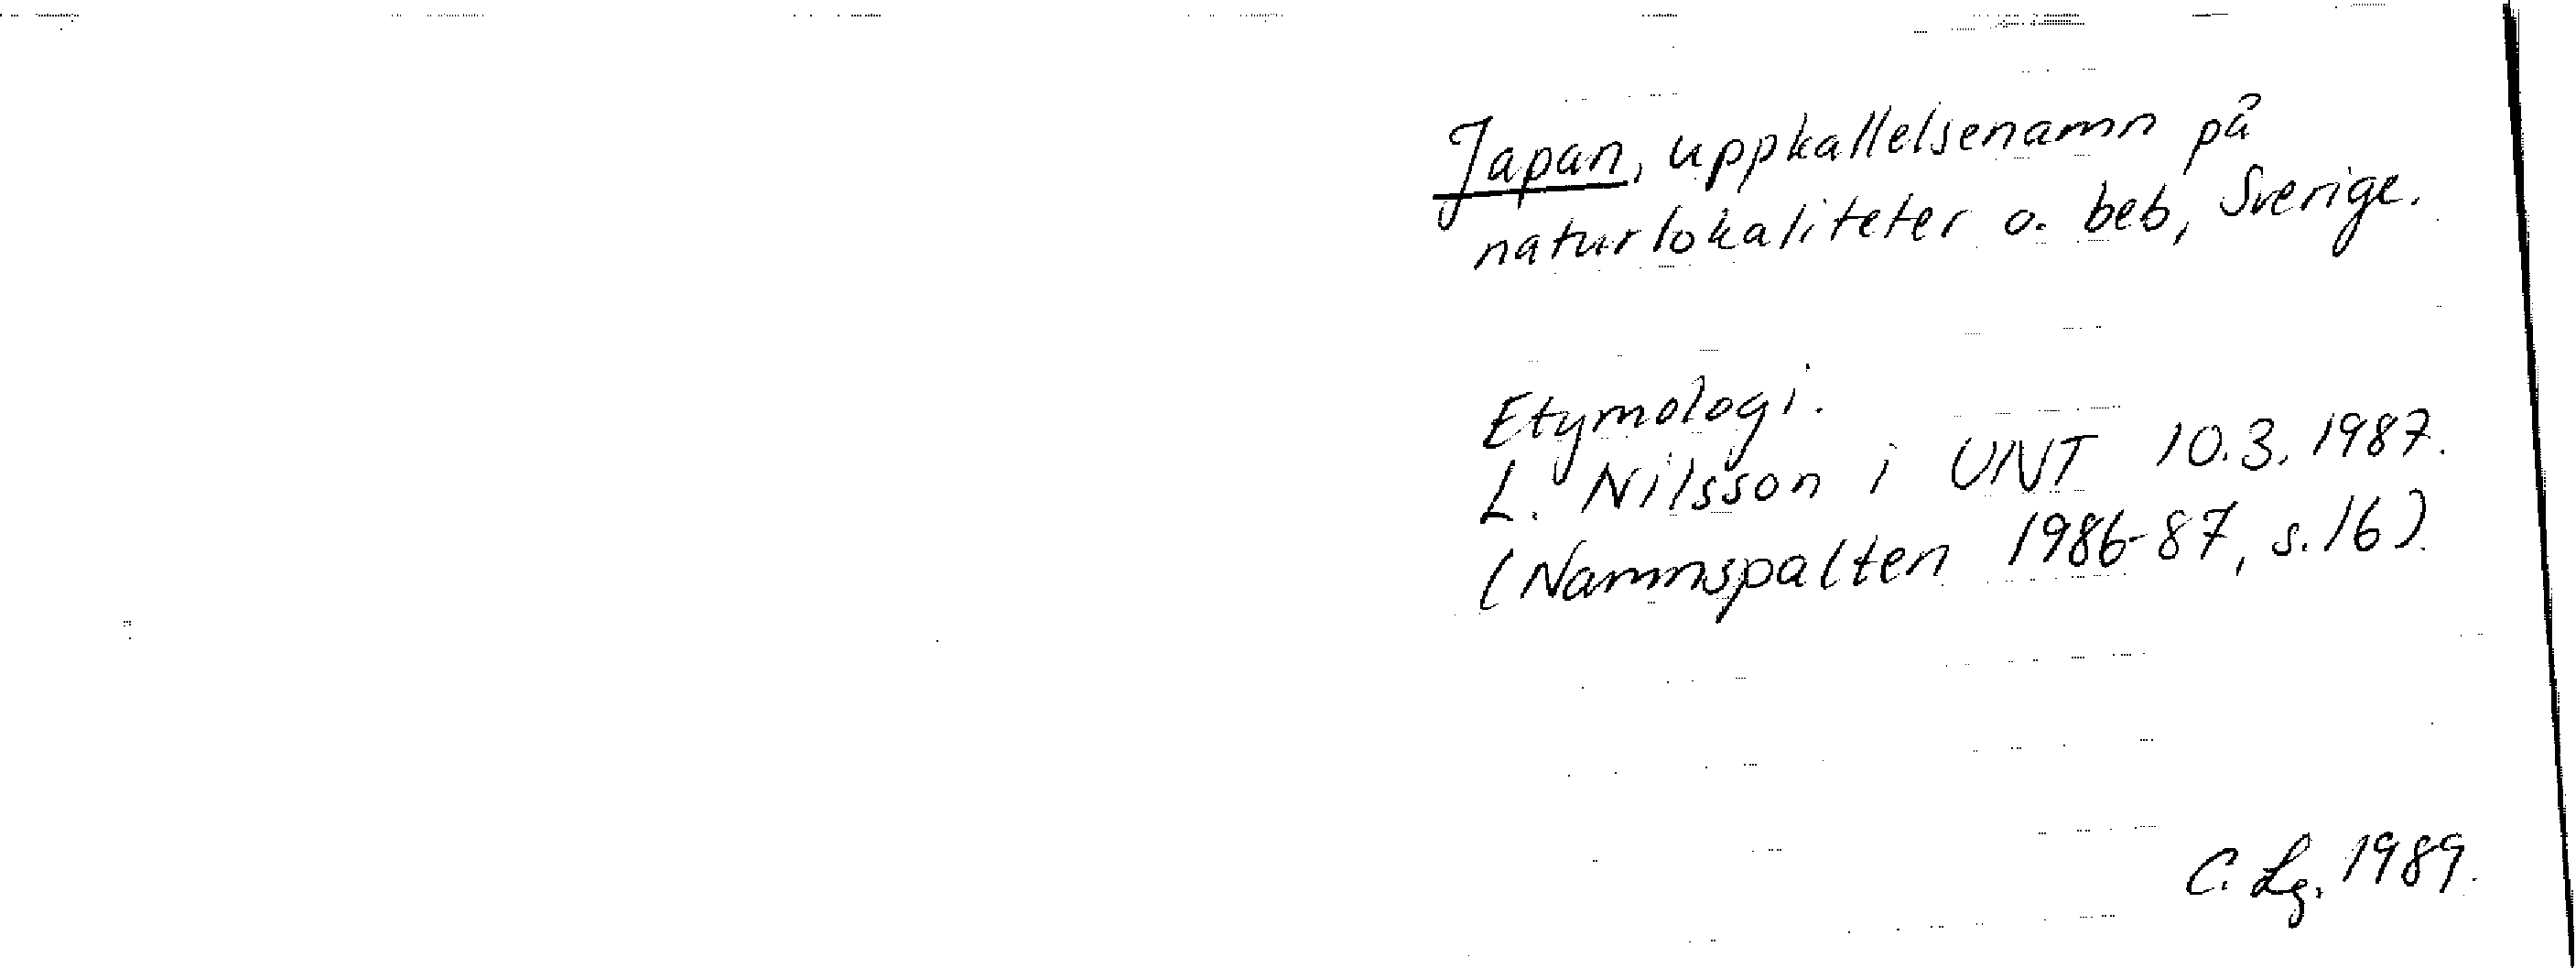 Japan, uppkallelsenamn på
naturlokaliteter o. beb, Sverige.
Etymologi.
L. Nilsson i UNT 10.3.1987.
(Namnspalten 1986-87, s. 16).
C. Lg. 1989.